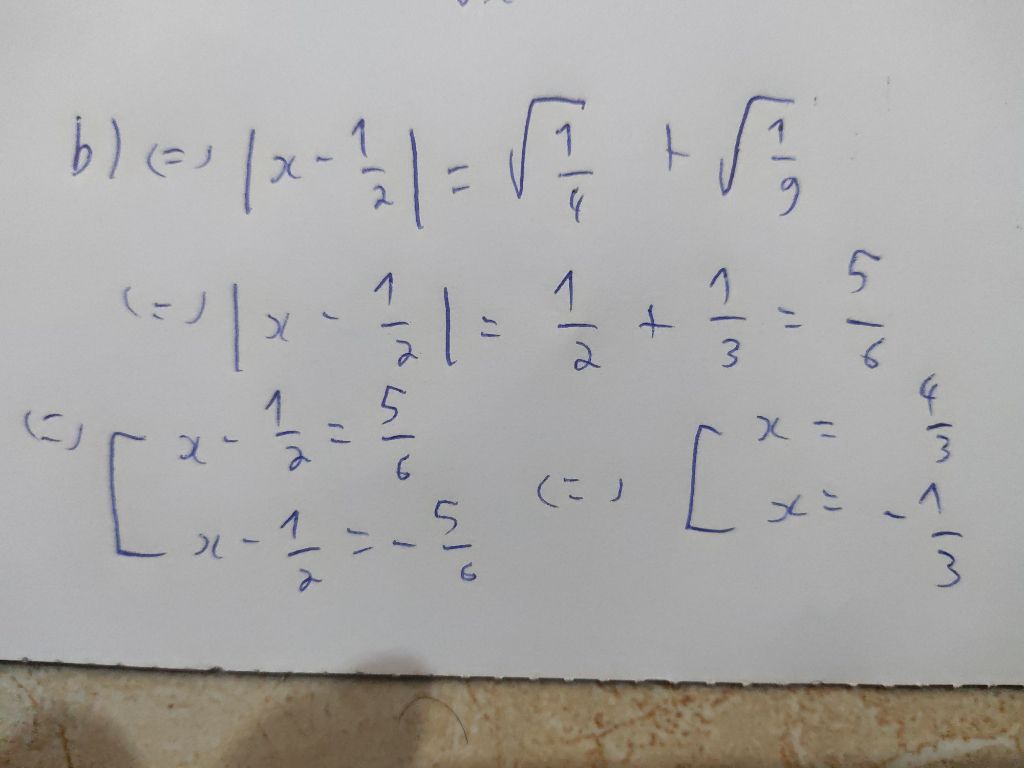 b) (=) |x - 1/2| = √(1/4) + √(1/9)
(=) |x - 1/2| = 1/2 + 1/3 = 5/6
(=) [ x - 1/2 = 5/6 (=) [ x = 4/3
x - 1/2 = - 5/6 x = - 1/3